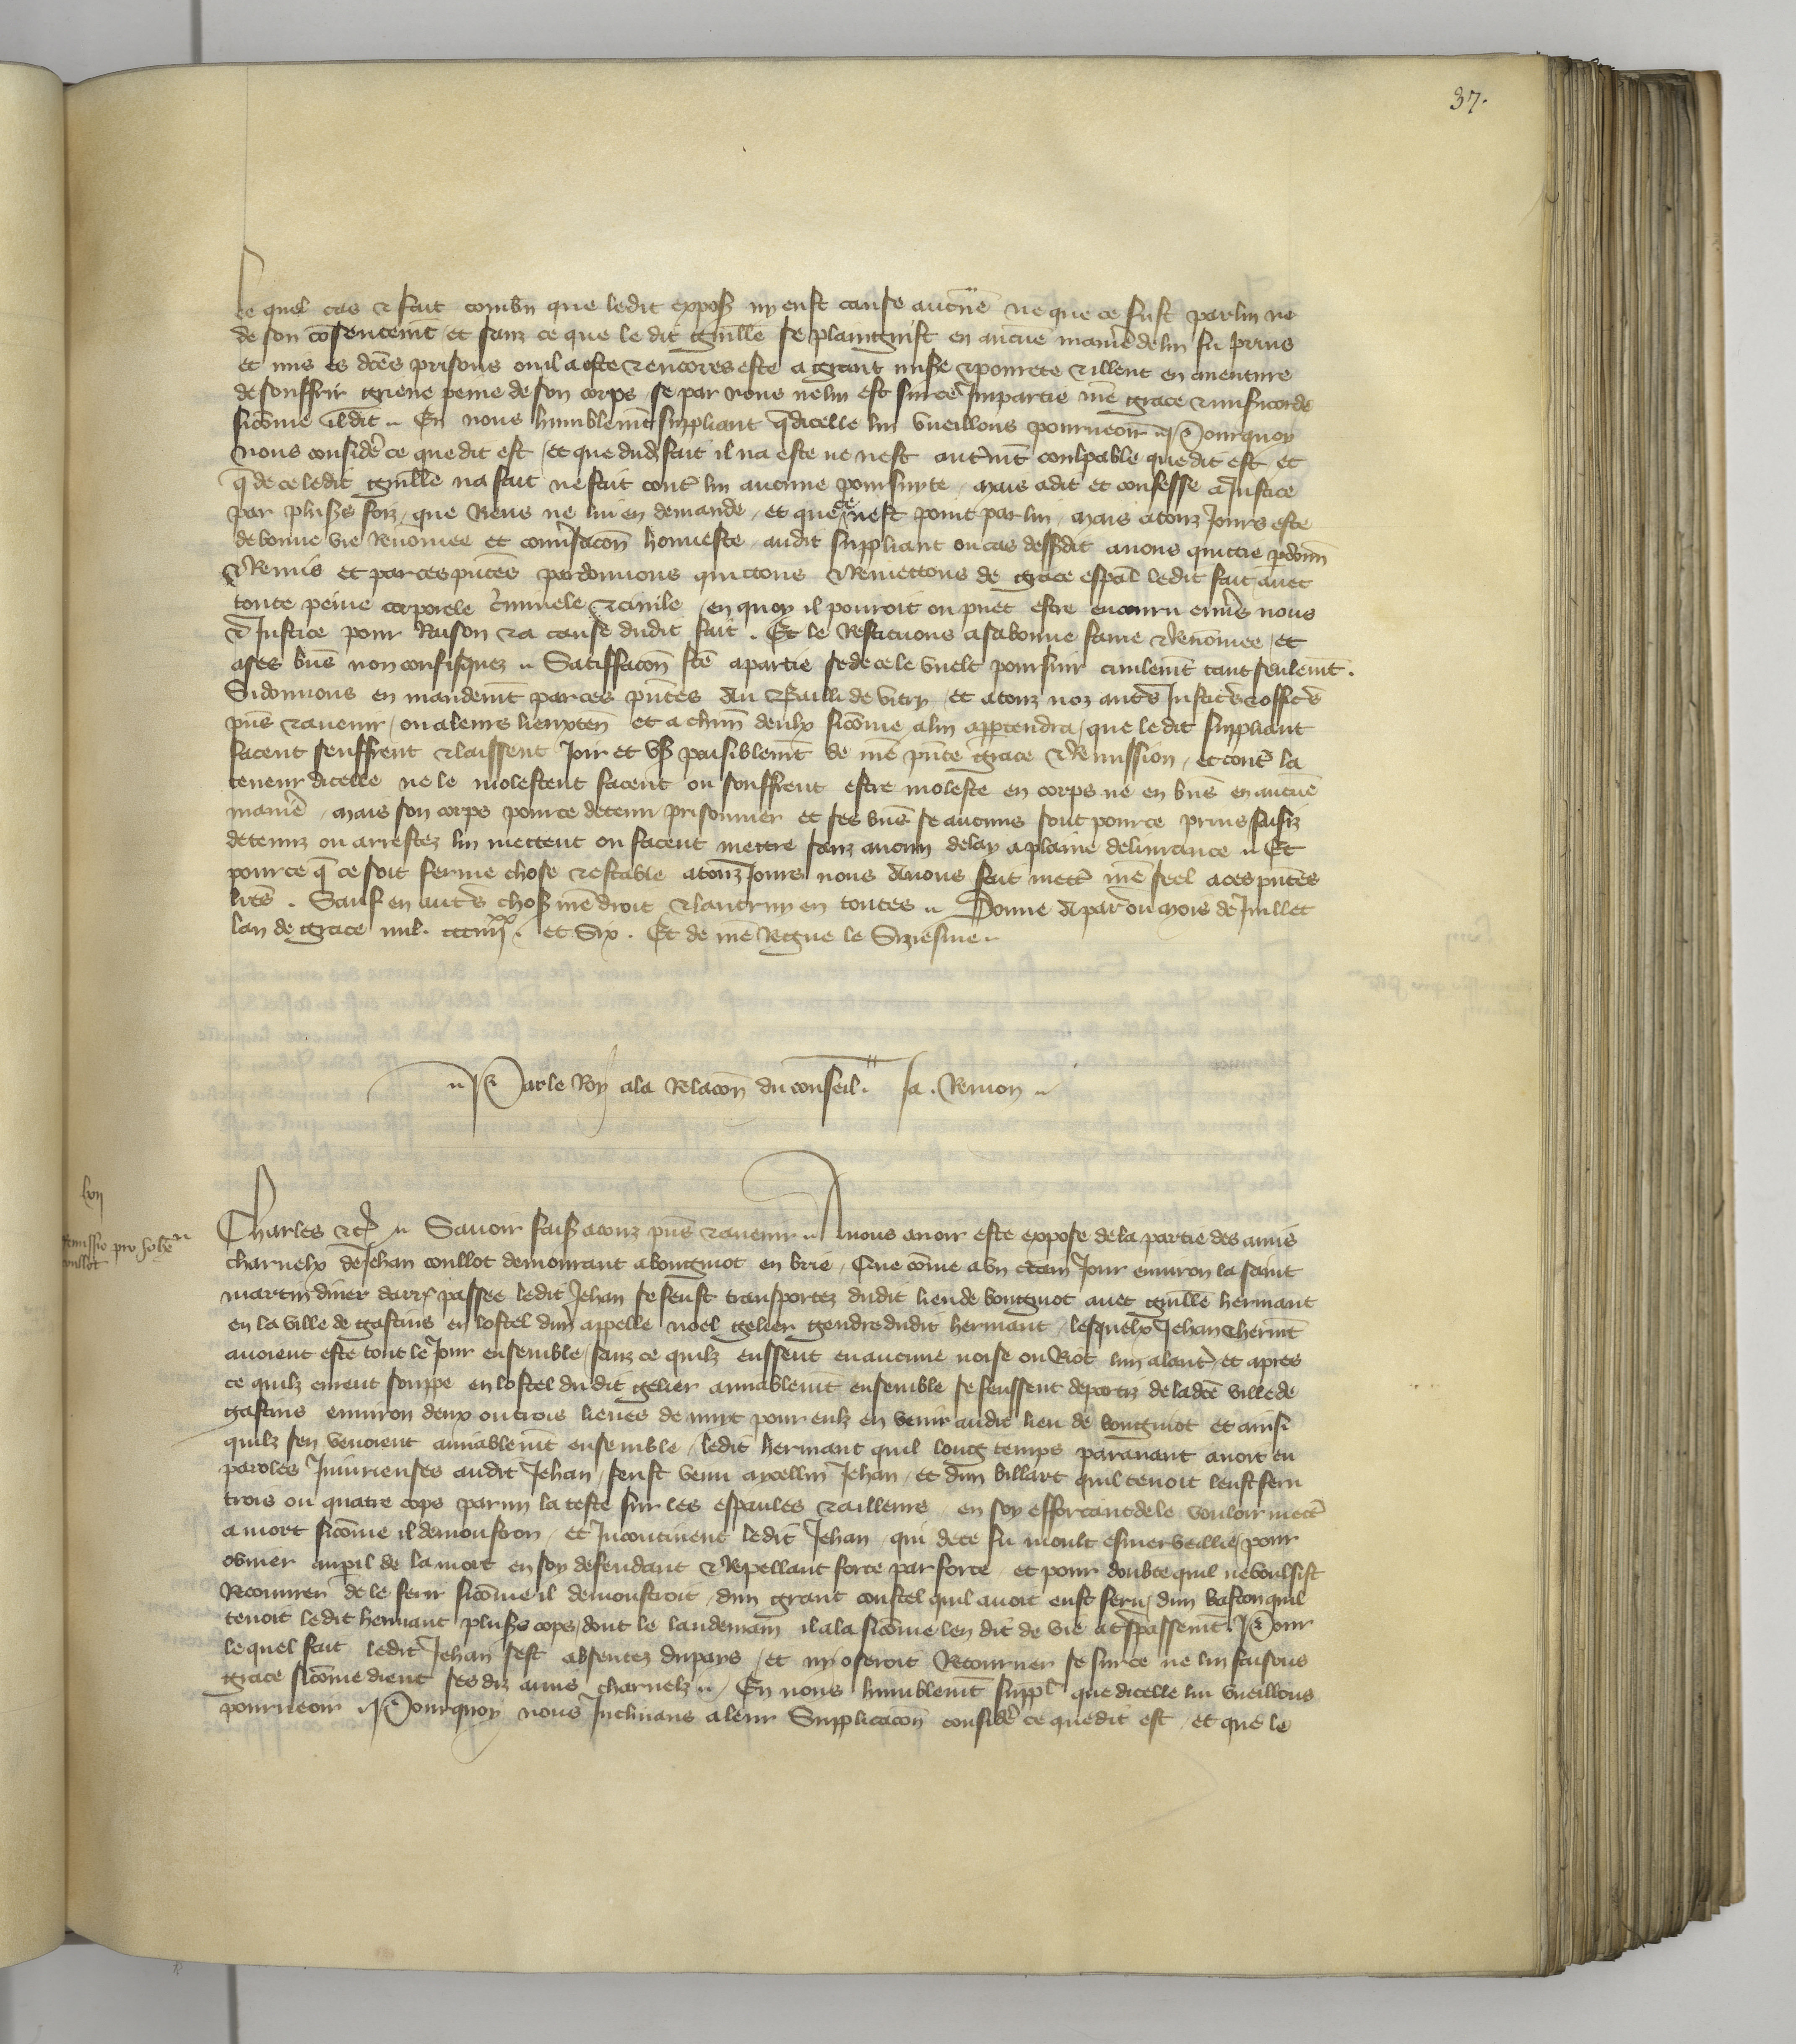 37.
le quel cas & fait combn̄ que ledit exposs ny eust cause aucūe ne que ce fust par luy ne
de son cōsentemt̄ et sanz ce que le dit guille se plaingnist en aucue maniē de luy fu prins
et mis es dc̄es prisons ou il a este & encores est a grant miss̄e & pourete & illeuc en auenture
de souffrir grieue peine de son corps se par nous ne luy est sur ce Impartie nr̄e grace & misicorde
sicōme il dit .. En nous humblemt̄ suppliant q̄ dicelle luy vueillons pourueoir .. Pourquoy
nous considē ce que dit est / et que dud̄ fait il na este ne nest autremt̄ coulpable que dit est et
q̄ de ce ledit guille na fait ne fait cont̄ luy aucune poursuyte / mais a dit et confesse a Justice
par pluss̄ foiz / que Riens ne lui en demande / et que ce nest point par luy / mais a touz Jours este
de bonne vie Renōmee et conūsacon̄ honneste / audit suppliant ou cas dessusdit auons quittie pdonn̄
& Remis et par ces pn̄tes pardonnons quictons & Remettons de grace espāl ledit fait auec
toute peine corporele c̄iminele & ciuile / en quoy il pouroit ou puet estre encouru enuēs nous
& Justice pour Raison & a cause dudit fait . Et le Restituons a sa bonne fame & Renōmee / et
a ses biēs non confisquez .. Satiffacon̄ fc̄e a partie se de ce le vuelt poursuir ciuilemt̄ tant seulemt̄ .
Si donnons en mandemt̄ par ces pn̄tes Au Bailli de vitry / et a touz noz aut̄s Justic̄s & offic̄s
pn̄s & auenir / ou a leurs lieuxten̄ et a chun̄ deulx sicōme a luy appartendra / que le dit suppliant
facent seuffrent & laissent Joir et vss paisiblemt̄ de nr̄e pn̄te grace & Remission / et cont̄ la
teneur dicelle ne le molestent facent ou souffrent estre moleste en corps ne en biēs en aucūe
maniē / mais son corps pour ce detenu prisonnier et ses biēs se aucuns sont pour ce prins / saisiz
detenuz ou arrestez lui mettent ou facent mettre sanz aucun delay a plaine deliurance .. Et
pour ce q̄ ce soit ferme chose & estable a touz Jours nous Auons fait mett̄ nr̄e seel a ces pn̄tes
lrēs . Sauf en aut̄s choss nr̄e droit & lautruy en toutes .. Donne A par̄ ou mois de Juillet
lan de grace mil . ccc iiijxx . et Six . Et de nr̄e Regne le Siziesme ..
.. Par le Roy a la Relacon̄ du conseil . Ja . Remon ..
lvij
Remissio pro Johē
Coullot
Charles &c̄ .. Sauoir faiss a touz pn̄s & auenir .. A nous auoir este expose de la partie des amis
charnelx de Jehan coullot demourant a bouguiot en brie / Que cōme a vn c̄tain Jour enuiron la saint
martin diuer darr̄ passee ledit Jehan se feust transportez dudit lieu de bouguiot auec guille hermant
en la ville de gastins en lostel dun appelle noel gelier gendre dudit hermant / lesquelx Jehan & hermt̄
auoient este tout le Jour ensemble / sanz ce quilz eussent eu aucune noise ou Riot lun a laut̄ et apres
ce quilz eurent souppe en lostel du dit gelier amiablemt̄ ensemble se feussent departiz de ladc̄e ville de
gastins enuiron deux ou trois lieues de nuyt pour eulx en venir audit lieu de bouguiot et ainsi
quilz sen venoient amiablemt̄ ensemble / ledit hermant qui long temps parauant auoit eu
paroles Iniurieuses audit Jehan / feust venu a icellui Jehan / et dun billart quil tenoit leust feru
trois ou quatre cops parmy la teste sur les espaules & ailleurs / en soy efforcant de le vouloir mett̄
a mort sicōme il demonstroit / et Incontinent ledit Jehan / qui de ce fu moult esmerueillie / pour
obuier au pil de la mort en soy defendant & Repellant force par force / et pour doubte quil ne voulsist
Recouurer de le ferir sicōme il demonstroit / dun grant coustel quil auoit eust feru / dun baston quil
tenoit ledit hermant pluss cops / dont le landemain il ala sicōme len dit de vie a t̄spassemt̄ . Pour
le quel fait ledit Jehan sest absentez du pays / et ny oseroit Retourner se sur ce ne luy faisons
grace sicōme dient ses diz amis charnelz .. En nous humblemt̄ suppl̄ que dicelle lui vueillons
pourueoir .. Pourquoy nous Inclinans a leur Supplicacon̄ considē ce que dit est / et que le